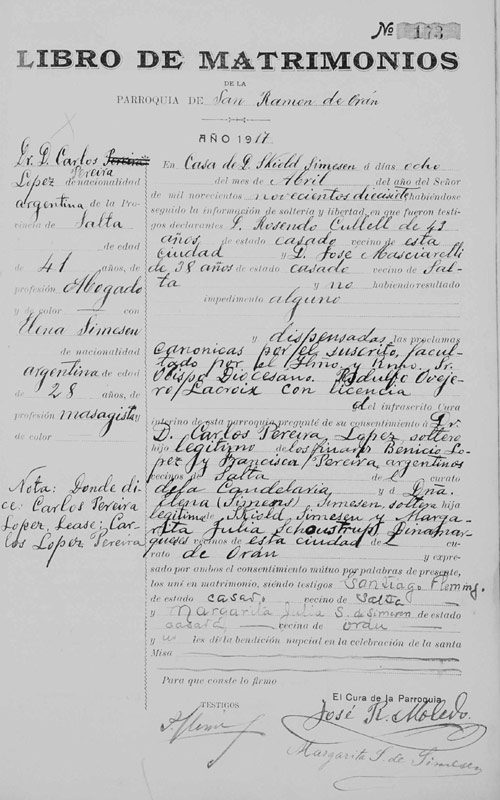 No 173
LIBRO DE MATRIMONIOS
DE LA
PARROQUIA DE San Ramon de Orán
AÑO 1917
Dr. D. Carlos Pereira
Pereira
López de nacionalidad
argentina de la Pro-
vincia de Salta
de edad
de 41 años, de
profesión Abogado
y de color — con
Elena Simesen
de nacionalidad
argentina de edad
de 28 años, de
profesión masagista
y de color
Nota: Donde di-
ce: Carlos Pereira
Lopez, Lease: Car-
los Lopez Pereira
En Casa de D. Skiold Simesen á días ocho
del mes de Abril del año del Señor
de mil novecientos novecientos diecisiete habiéndose
seguido la información de soltería y libertad, en que fueron testi-
gos declarantes D. Rosendo Cullell de 43
años de estado casado vecino de esta
ciudad y D. Jose Masciarelli
de 38 años de estado casado vecino de Sal-
ta y no habiendo resultado
impedimento alguno
y dispensadas las proclamas
canonicas por el suscrito, facul-
tado por el Ilmo y Rmo. Sr.
Obispo Diocesano. Rodulfo Oveje-
ro Lacroix con licencia
del infrascrito Cura
interino de esta parroquia pregunté de su consentimiento á Dr.
D. Carlos Pereira Lopez, soltero
hijo legitimo de los finados Benicio Lo-
pez y Francisca Pereira, argentinos
vecinos de Salta del curato
de la Candelaria y á Dna.
Elena Simesen, soltera hija
legítima de Skiold Simesen y Marga-
rita Julia Schoustrup, Dinamar-
queses vecinos de esta ciudad del cu-
rato de Orán y expre-
sado por ambos el consentimiento mútuo por palabras de presente,
los uní en matrimonio, siendo testigos Santiago Fleming.
de estado casado vecino de Salta
y Margarita Julia S. de Simesen de estado
casada vecina de Orán
y les dí la bendición nupcial en la celebración de la santa
Misa
Para que conste lo firmo
El Cura de la Parroquia
TESTIGOS
José R. Moledo.
Margarita S. de Simesen